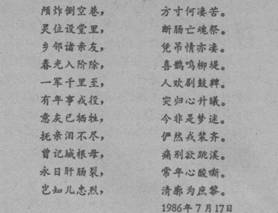 炸倒空巷，方寸何凄苦。
灵位设堂里，断肠亡魂祭。
乡邻诸亲友，凭吊情亦凄。
春光入阶除，喜鹊鸣柳堤。
一军千里至，人欢剧鼓鞞。
有年事戎径，突归心升曦。
意灰已牺牲，今非是梦迷。
抚亲泪不尽，俨然戎装齐。
曾记城根母，痛别欲跳溪。
永日肝肠裂，常年心酸嘶。
岂知儿忠烈，清廓为庶黎。
1986年7月17日